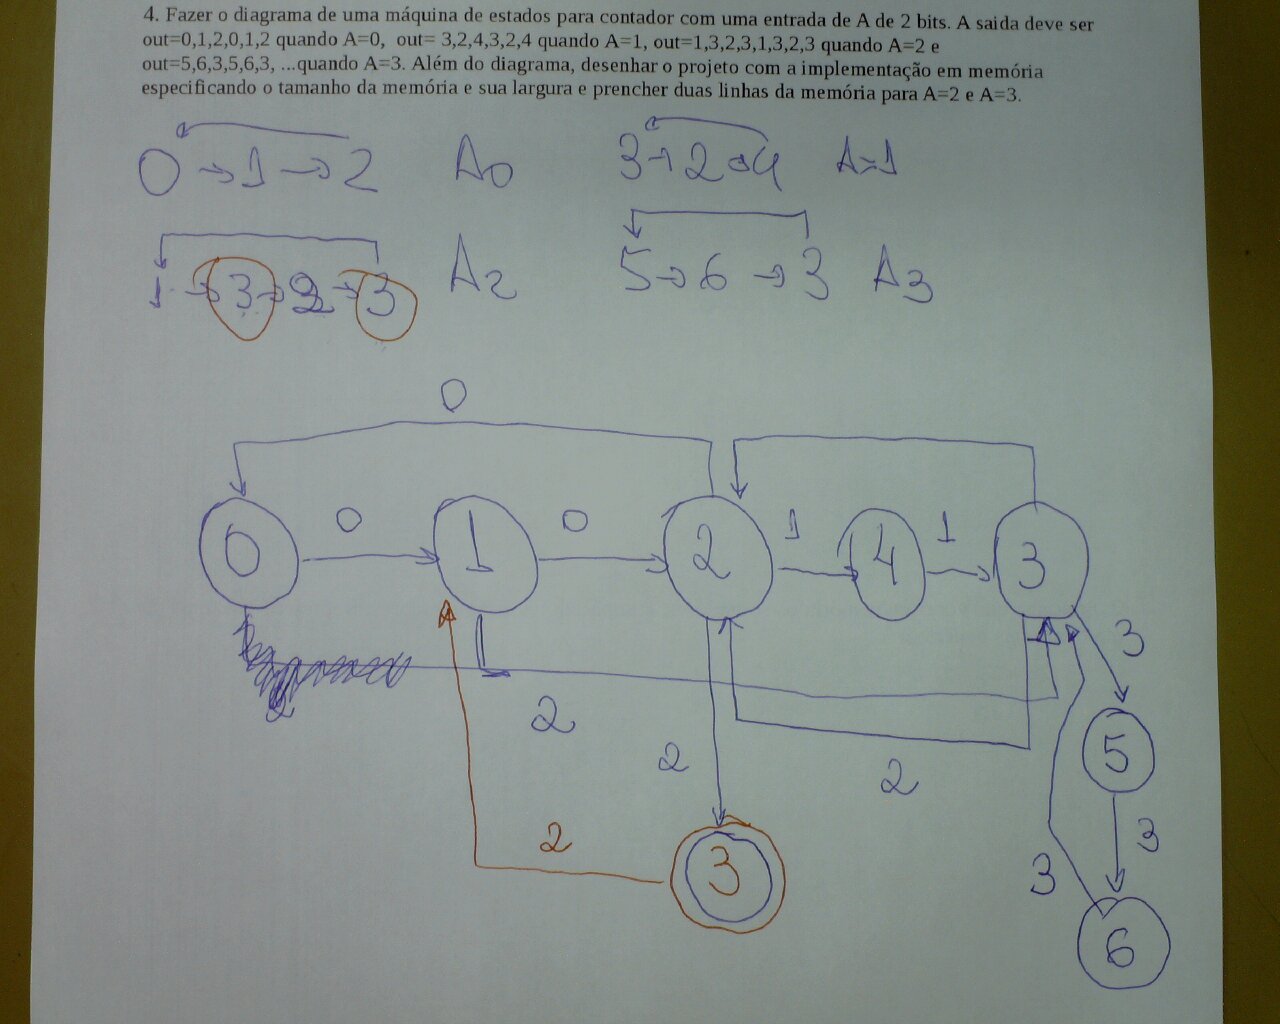 4. Fazer o diagrama de uma máquina de estados para contador com uma entrada de A de 2 bits. A saida deve ser
out=0,1,2,0,1,2 quando A=0, out= 3,2,4,3,2,4 quando A=1, out=1,3,2,3,1,3,2,3 quando A=2 e
out=5,6,3,5,6,3, ...quando A=3. Além do diagrama, desenhar o projeto com a implementação em memória
especificando o tamanho da memória e sua largura e prencher duas linhas da memória para A=2 e A=3.
0 → 1 → 2 A0 3 → 2 → 4 A=1
1 → 3 → 2 → 3 A2 5 → 6 → 3 A3
0
0 0 1 1
0 1 2 4 3
3
2
2 2 5
2 3 3
3
6